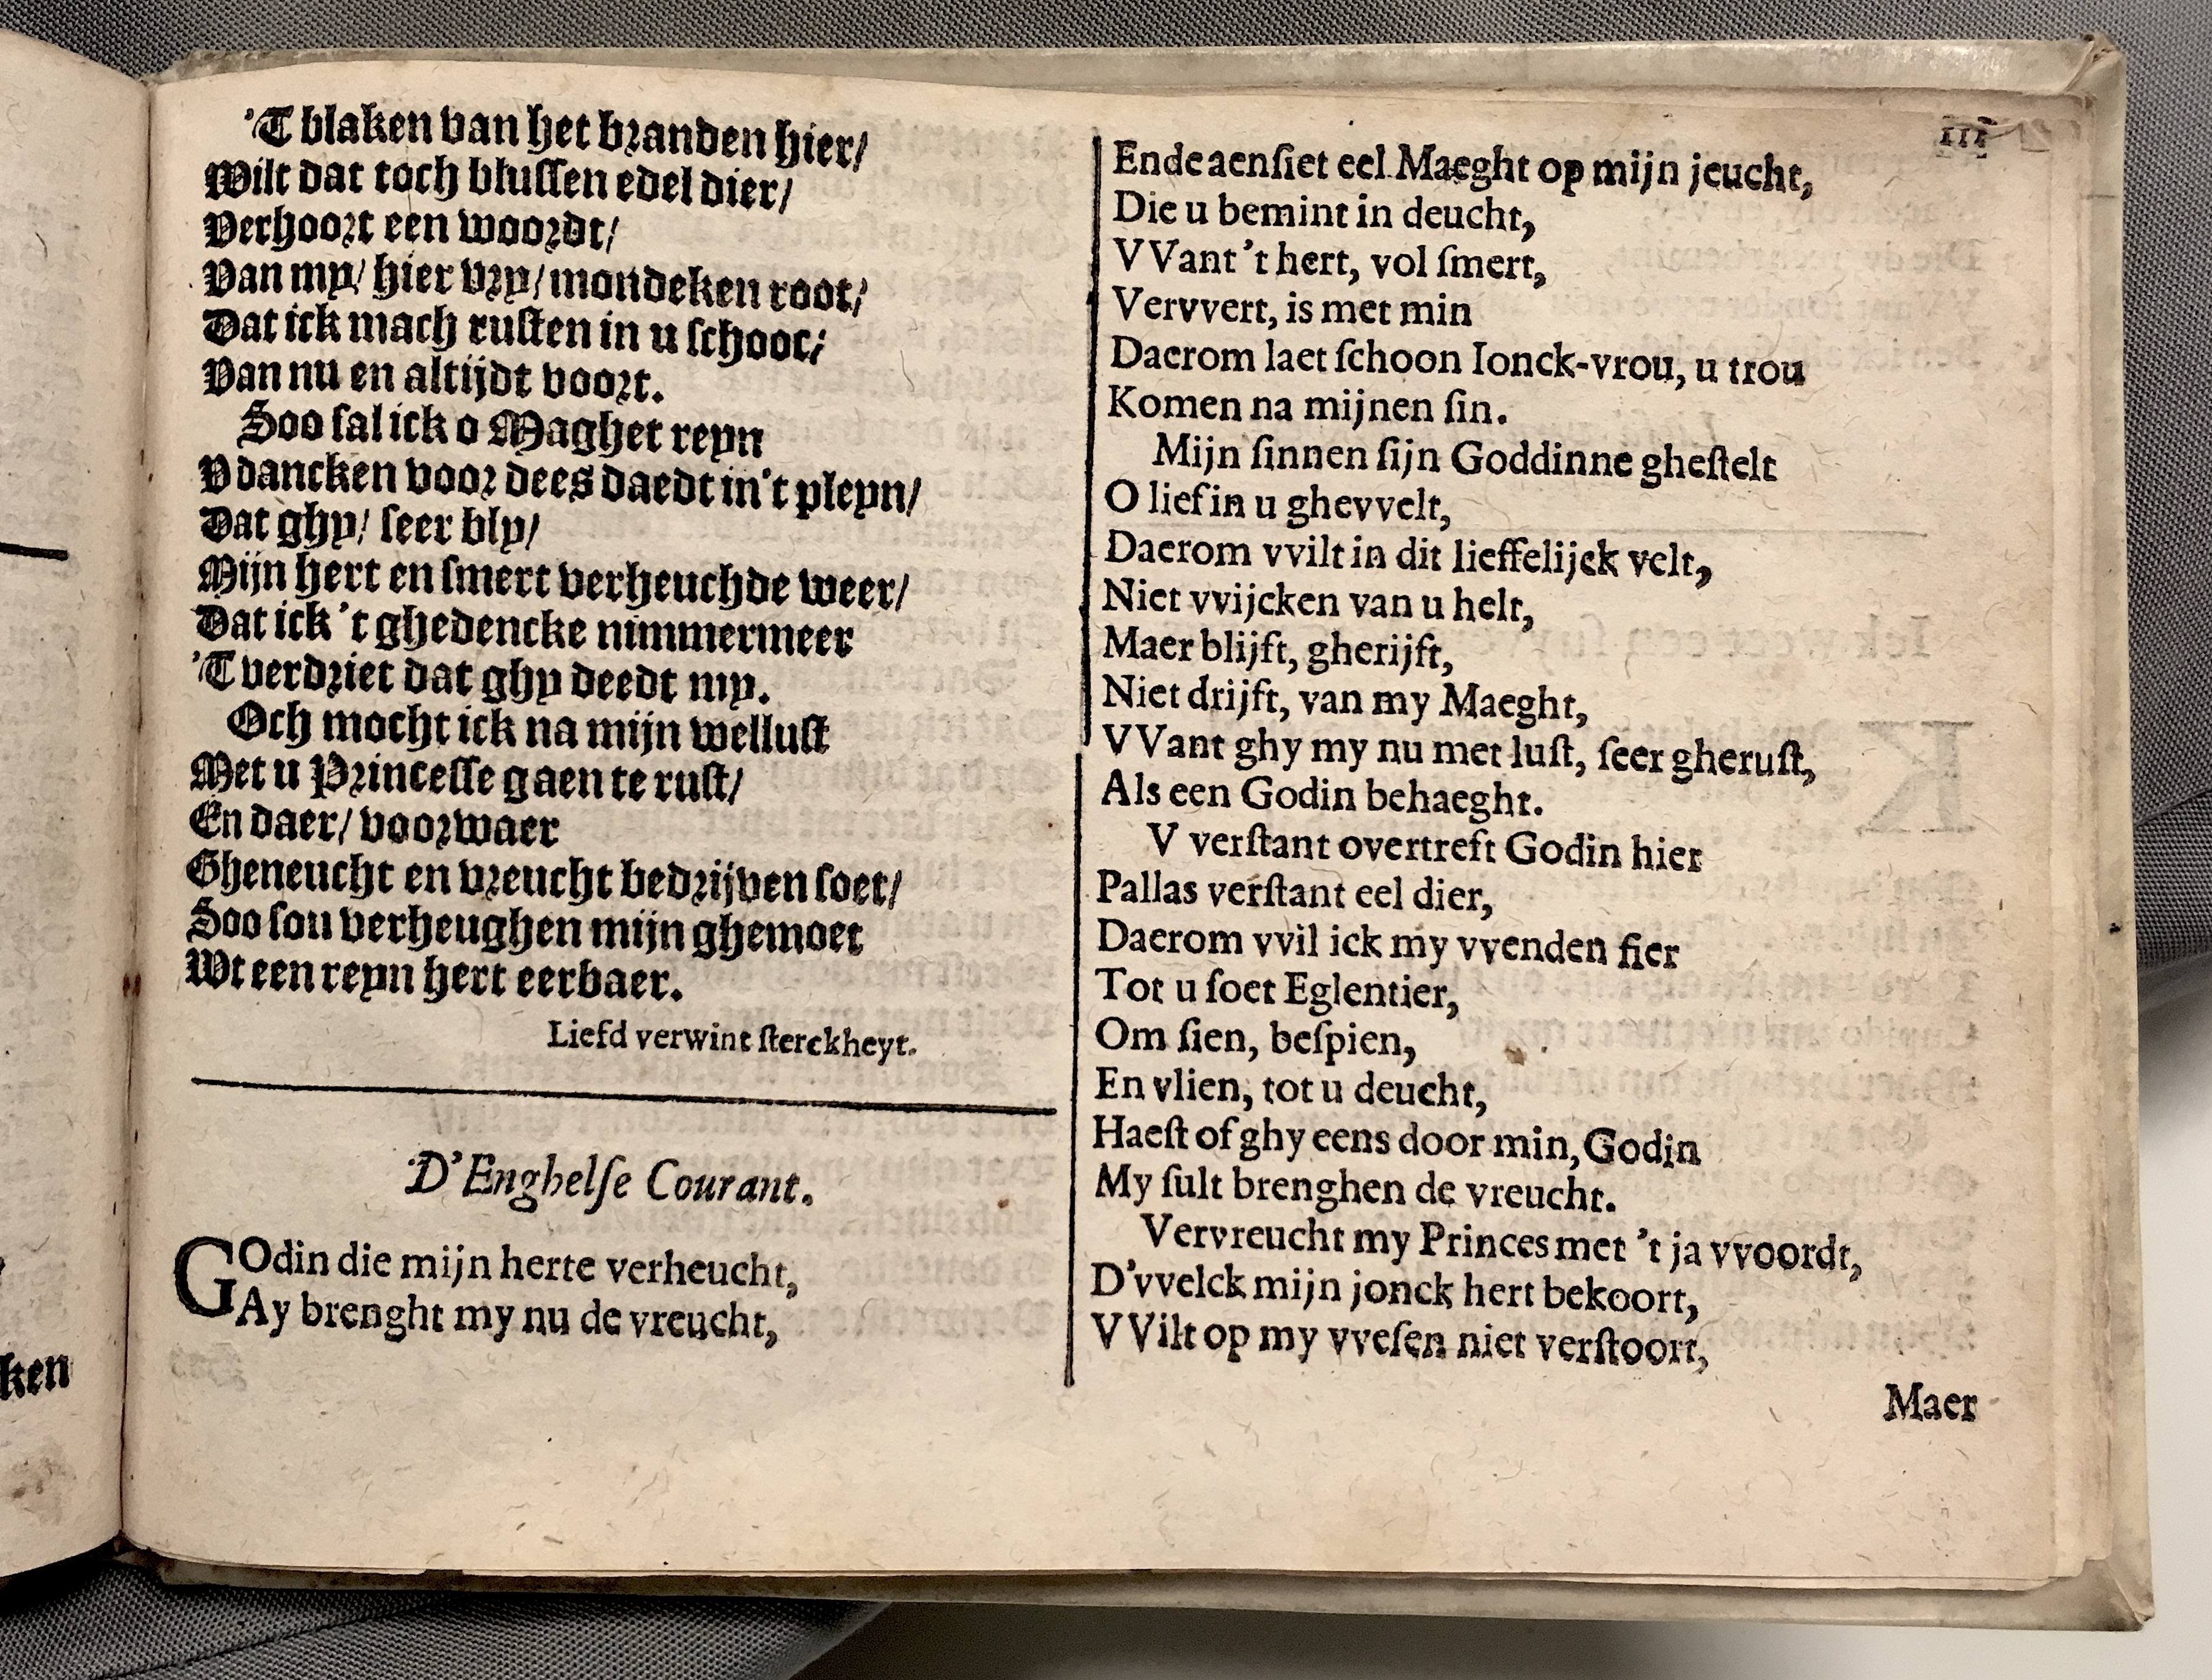 ken
'T blaken van het branden hier/
Wilt dat toch blussen edel dier/
Verhoort een woordt/
Van my/ hier vry/ mondeken root/
Dat ick mach rusten in u schoot/
Van nu en altijdt voort.
Soo sal ick o Maghet reyn
V dancken voor dees daedt in't pleyn/
Dat ghy/ seer bly/
Mijn hert en smert verheuchde weer/
Dat ick 't ghedencke nimmermeer
'T verdriet dat ghy deedt my.
Och mocht ick na mijn wellust
Met u Princesse gaen te rust/
En daer/ voorwaer
Gheneucht en vreucht bedrijven soet/
Soo sou verheughen mijn ghemoet
Wt een reyn hert eerbaer.
Liefd verwint sterckheyt.
D'Enghelse Courant.
GOdin die mijn herte verheucht,
Ay brenght my nu de vreucht,
111
Ende aensiet eel Maeght op mijn jeucht,
Die u bemint in deucht,
VVant 't hert, vol smert,
Vervvert, is met min
Daerom laet schoon Ionck-vrou, u trou
Komen na mijnen sin.
Mijn sinnen sijn Goddinne ghestelt
O lief in u ghevvelt,
Daerom vvilt in dit lieffelijck velt,
Niet vvijcken van u helt,
Maer blijft, gherijft,
Niet drijft, van my Maeght,
VVant ghy my nu met lust, seer gherust,
Als een Godin behaeght.
V verstant overtreft Godin hier
Pallas verstant eel dier,
Daerom vvil ick my vvenden fier
Tot u soet Eglentier,
Om sien, bespien,
En vlien, tot u deucht,
Haest of ghy eens door min, Godin
My sult brenghen de vreucht.
Vervreucht my Princes met 't ja vvoordt,
D'vvelck mijn jonck hert bekoort,
VVilt op my vvesen niet verstoort,
Maer